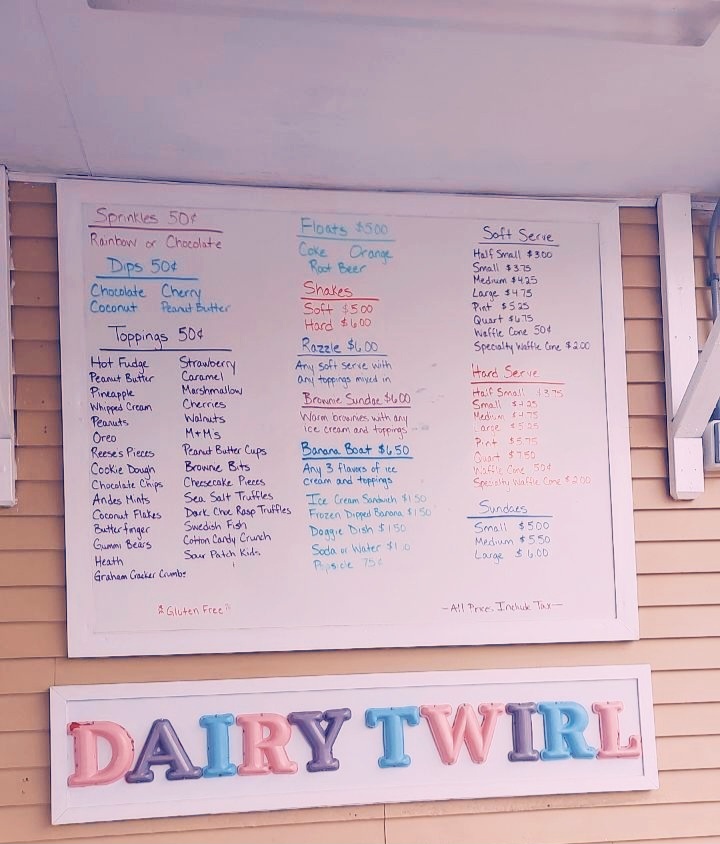 Sprinkles 50¢
Rainbow or Chocolate
Dips 50¢
Chocolate Cherry
Coconut Peanut Butter
Toppings 50¢
Hot Fudge
Peanut Butter
Pineapple
Whipped Cream
Peanuts
Oreo
Reeses Pieces
Cookie Dough
Chocolate Chips
Andes Mints
Coconut Flakes
Butterfinger
Gummi Bears
Heath
Graham Cracker Crumbs
Strawberry
Caramel
Marshmallow
Cherries
Walnuts
M+M's
Peanut Butter Cups
Brownie Bits
Cheesecake Pieces
Sea Salt Truffles
Dark Choc Rasp Truffles
Swedish Fish
Cotton Candy Crunch
Sour Patch Kids
Gluten Free
Floats $5.00
Coke Orange
Root Beer
Shakes
Soft $5.00
Hard $6.00
Razzle $6.00
Any soft serve with
any toppings mixed in
Brownie Sundae $6.00
Warm brownies with any
ice cream and toppings
Banana Boat $6.50
Any 3 flavors of ice
cream and toppings
Ice Cream Sandwich $1.50
Frozen Dipped Banana $1.50
Doggie Dish $1.50
Soda or Water
Popsicle 75¢
Soft Serve
Half Small $3.00
Small $3.75
Medium $4.25
Large $4.75
Pint $5.25
Quart $6.75
Waffle Cone 50¢
Specialty Waffle Cone $2.00
Hard Serve
Half Small $3.75
Small $4.25
Medium $4.75
Large $5.25
Pint $5.75
Quart $7.50
Waffle Cone 50¢
Specialty Waffle Cone $2.00
Sundaes
Small $5.00
Medium $5.50
Large $6.00
-All Prices Include Tax-
DAIRY TWIRL